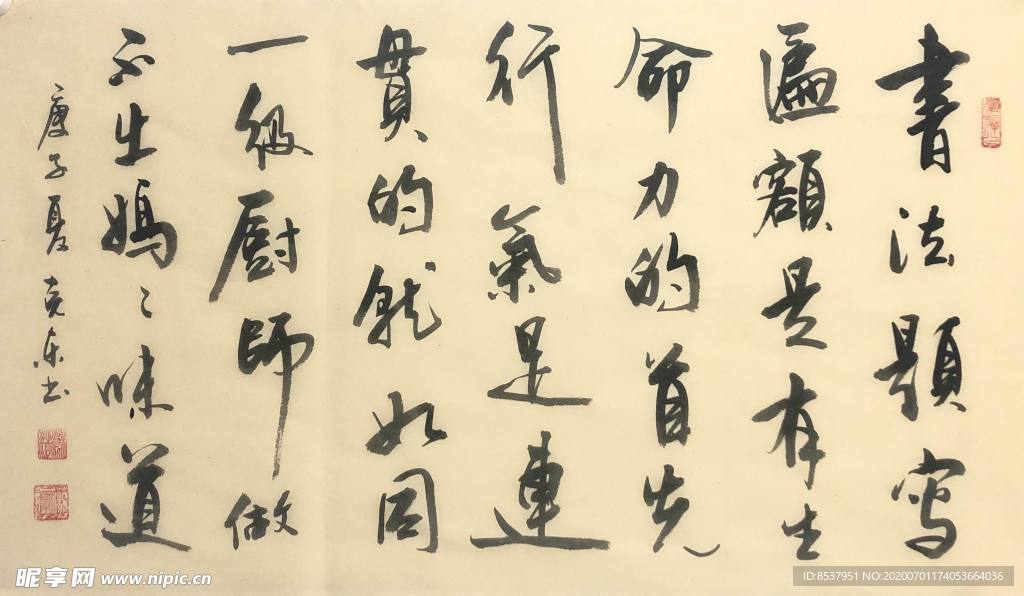 書法題写
遍额是有生
命力的首先
行氣是連
貫的就如同
一级厨師做
不出媽媽味道
庚子夏克东书
昵享网 www.nipic.cn
ID:8537951 NO:20200701174053664036